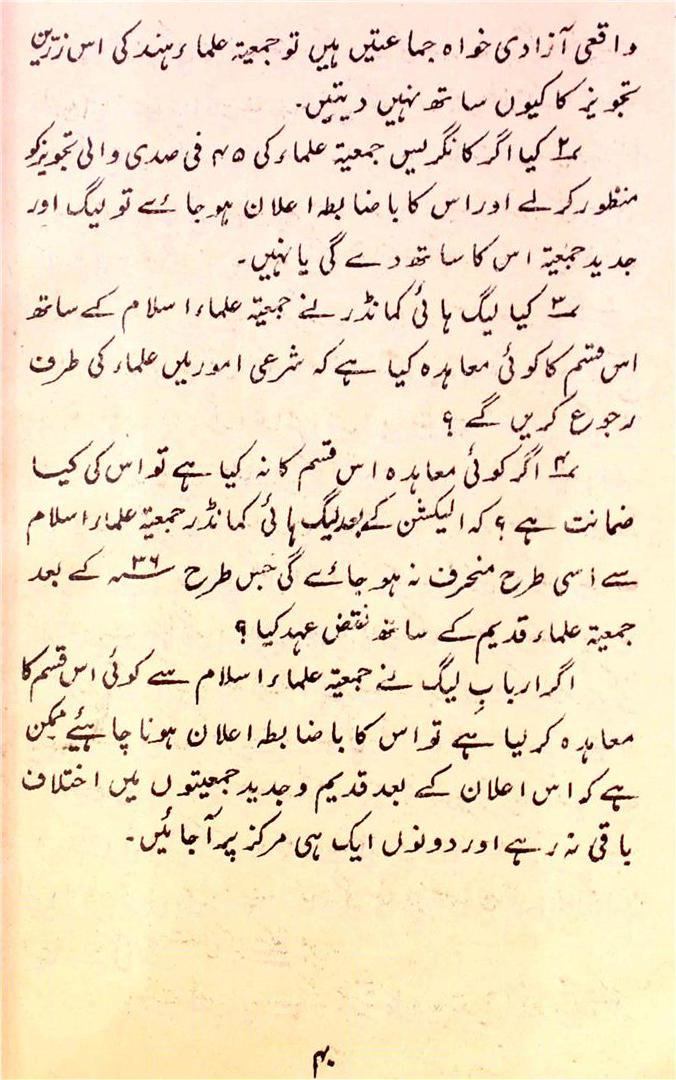 واقعی آزادی خواہ جماعتیں ہیں تو جمعیۃ علماء ہند کی اس زرّیں
تجویز کا کیوں ساتھ نہیں دیتیں۔
۲؎ کیا اگر کانگریس جمعیۃ علماء کی ۴۵ فی صدی والی تجویز کو
منظور کر لے اور اس کا باضابطہ اعلان ہو جائے تو لیگ اور
جدید جمعیۃ اس کا ساتھ دے گی یا نہیں۔
۳؎ کیا لیگ ہائی کمانڈر نے جمعیۃ علماء اسلام کے ساتھ
اس قسم کا کوئی معاہدہ کیا ہے کہ شرعی امور میں علماء کی طرف
رجوع کریں گے ؟
۴؎ اگر کوئی معاہدہ اس قسم کا نہ کیا ہے تو اس کی کیا
ضمانت ہے ؟ کہ الیکشن کے بعد لیگ ہائی کمانڈر جمعیۃ علماء اسلام
سے اسی طرح منحرف نہ ہو جائے گی جس طرح ۳۶؁ کے بعد
جمعیۃ علماء قدیم کے ساتھ نقض عہد کیا ؟
اگر اربابِ لیگ نے جمعیۃ علماء اسلام سے کوئی اس قسم کا
معاہدہ کر لیا ہے تو اس کا باضابطہ اعلان ہونا چاہئیے ممکن
ہے کہ اس اعلان کے بعد قدیم و جدید جمعیتوں میں اختلاف
باقی نہ رہے اور دونوں ایک ہی مرکز پر آ جائیں۔
۴۰